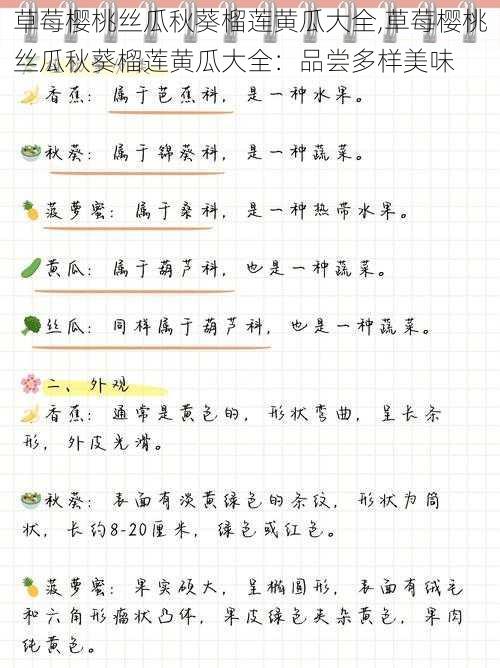 草莓樱桃丝瓜秋葵榴莲黄瓜大全,草莓樱桃
丝瓜秋葵榴莲黄瓜大全：品尝多样美味
香蕉：属于芭蕉科，是一种水果。
秋葵：属于锦葵科，是一种蔬菜。
菠萝蜜：属于桑科，是一种热带水果。
黄瓜：属于葫芦科，也是一种蔬菜。
丝瓜：同样属于葫芦科，也是一种蔬菜。
二、外观
香蕉：通常是黄色的，形状弯曲，呈长条
形，外皮光滑。
秋葵：表面有淡黄绿色的条纹，形状为筒
状，长约8-20厘米，绿色或红色。
菠萝蜜：果实硕大，呈椭圆形，表面有绒毛
和六角形瘤状凸体，果皮绿色夹杂黄色，果肉
纯黄色。